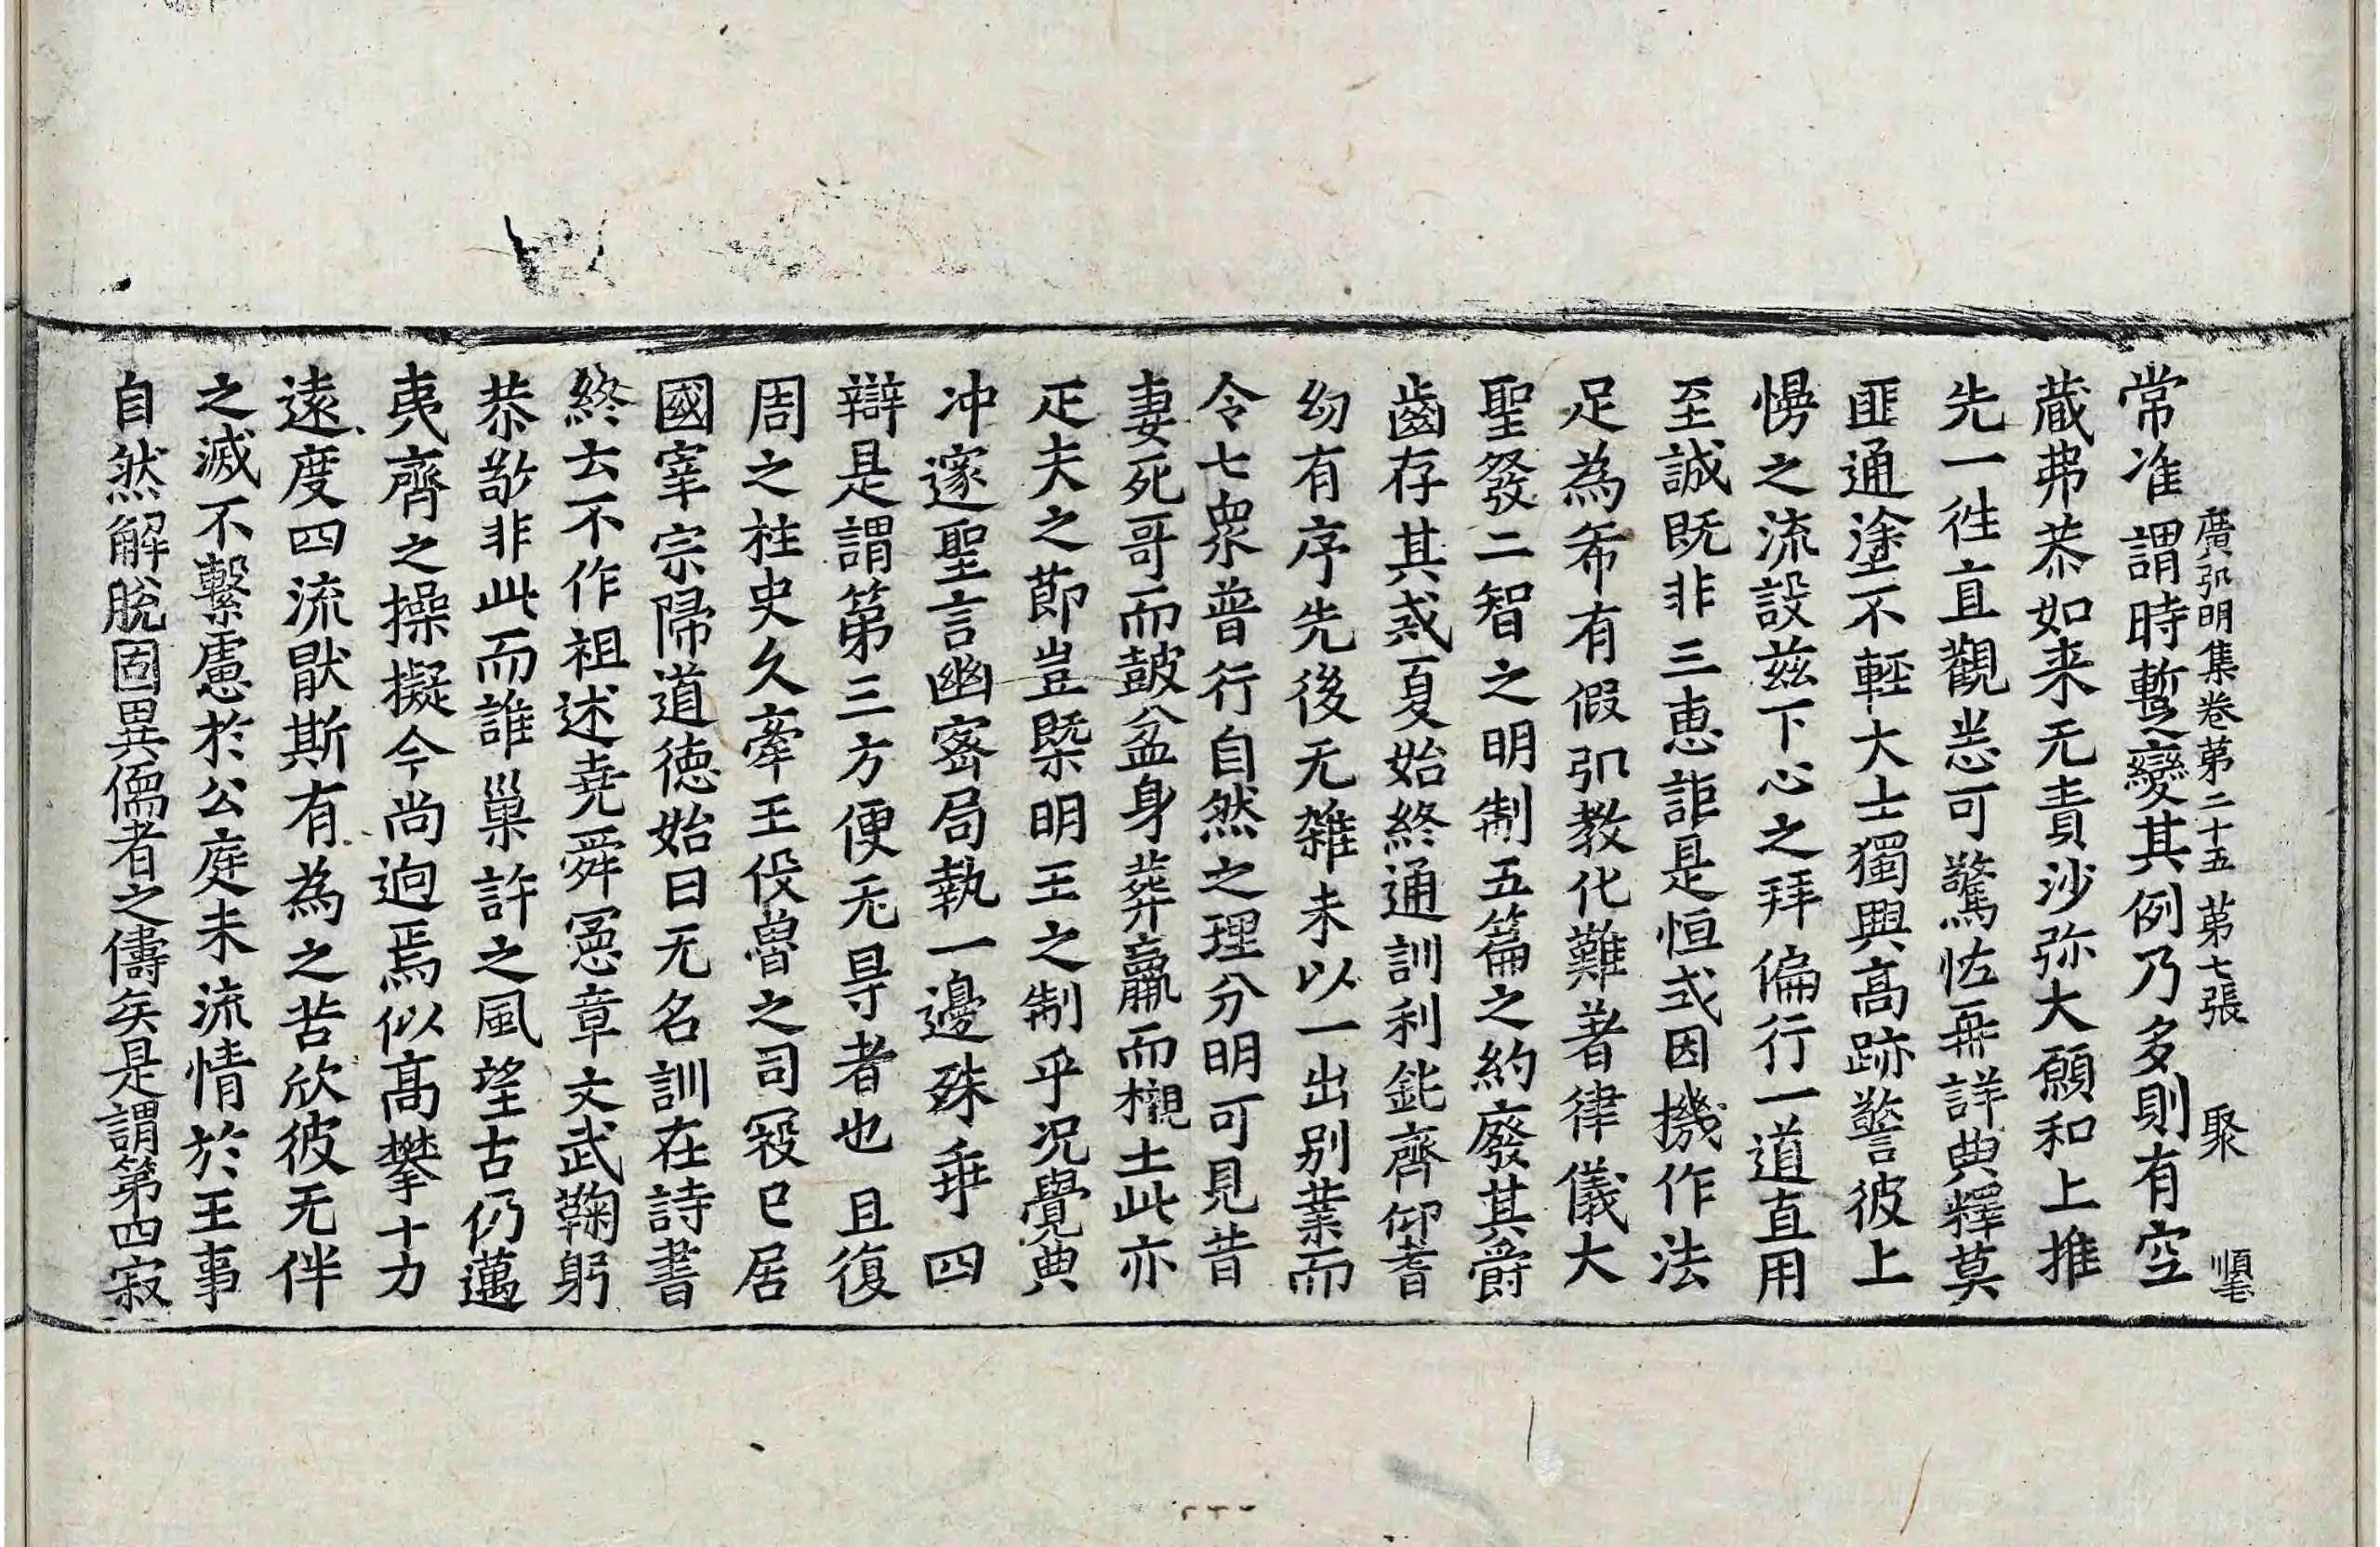 廣弘明集卷第二十五 第七張 聚 順宅
常准謂時蹔變其例乃多則有空
蔵弗恭如来无責沙弥大願和上推
先一徃直觀悉可驚恠再詳典釋莫
匪通塗不輕大士獨興高跡警彼上
慢之流設兹下心之拜偏行一道直用
至誠既非三恵詎是恒式因機作法
足為希有假弘教化難著律儀大
聖發二智之明制五篇之約廢其爵
齒存其戒夏始終通訓利鈍齊仰耆
幼有序先後无雜未以一出别業而
令七衆普行自然之理分明可見昔
妻死哥而鼓盆身葬羸而櫬土此亦
疋夫之節豈槩明王之制乎况覺典
冲邃聖言幽密局執一邊殊乖四
辯是謂第三方便无㝵者也 且復
周之柱史久牽王役魯之司㓂已居
國宰宗歸道德始曰无名訓在詩書
終云不作祖述堯舜憲章文武鞠躬
恭敬非此而誰巢許之風望古仍邁
夷齊之操擬今尚逈焉似高攀十力
遠度四流猒斯有為之苦欣彼无伴
之滅不繫慮於公庭未流情於王事
自然解脱固異儒者之儔矣是謂第四寂